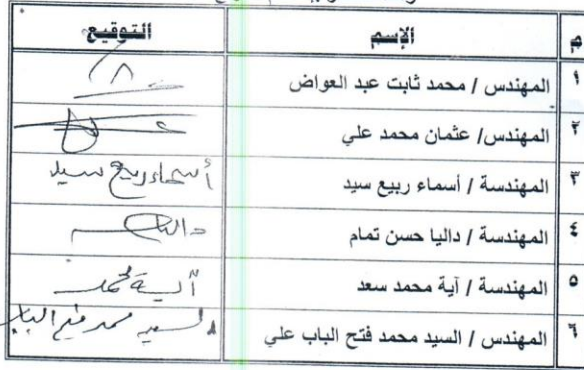 م الإسم التوقيع
١ المهندس / محمد ثابت عبد العواض
٢ المهندس/ عثمان محمد علي
٣ المهندسة / أسماء ربيع سيد أسماء ربيع سيد
٤ المهندسة / داليا حسن تمام داليا
٥ المهندسة / آية محمد سعد آية محمد
٦ المهندس / السيد محمد فتح الباب علي السيد محمد فتح الباب